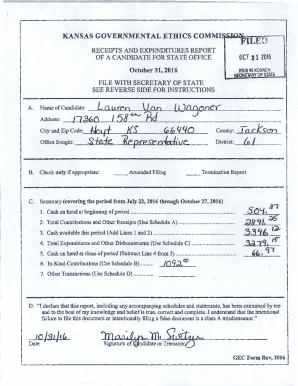 KANSAS GOVERNMENTAL ETHICS COMMISSION
FILED
RECEIPTS AND EXPENDITURES REPORT
OF A CANDIDATE FOR STATE OFFICE
OCT 31 2016
October 31, 2016
KRIS W. KOBACH
SECRETARY OF STATE
FILE WITH SECRETARY OF STATE
SEE REVERSE SIDE FOR INSTRUCTIONS
A. Name of Candidate: Lauren Van Wagoner
Address: 17360 158th Rd
City and Zip Code: Hoyt KS 66440 County: Jackson
Office Sought: State Representative District: 61
B. Check only if appropriate: Amended Filing Termination Report
C. Summary (covering the period from July 22, 2016 through October 27, 2016)
1. Cash on hand at beginning of period 504.37
2. Total Contributions and Other Receipts (Use Schedule A)
3. Cash available this period (Add Lines 1 and 2)
4. Total Expenditures and Other Disbursements (Use Schedule C) 3279.15
5. Cash on hand at close of period (Subtract Line 4 from 3) 66.97
6. In-Kind Contributions (Use Schedule B) 1092.00
7. Other Transactions (Use Schedule D)
D. "I declare that this report, including any accompanying schedules and statements, has been examined by me
and to the best of my knowledge and belief is true, correct and complete. I understand that the intentional
failure to file this document or intentionally filing a false document is a class A misdemeanor."
10/31/16 Marilyn M.
Date Signature of Candidate or Treasurer
GEC Form Rev, 2016